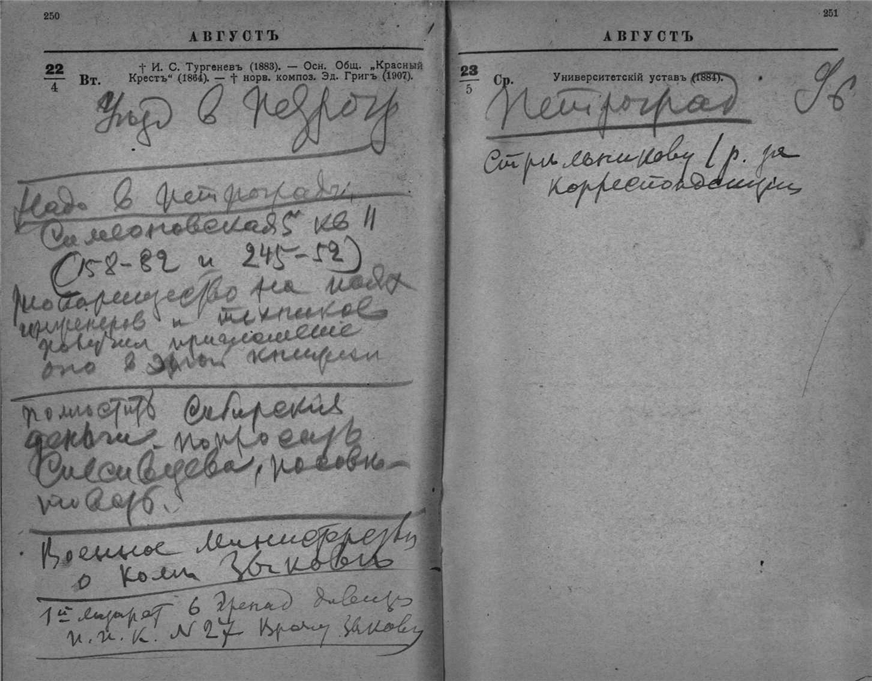 250
АВГУСТЪ
22/4 Вт. † И. С. Тургеневъ (1883). — Осн. Общ. „Красный
Крестъ“ (1864). — † норв. композ. Эд. Григъ (1907).
в
Надо в Петроградъ
Симеоновская 5 кв 11
(158-82 и 245-52)
товарищество на паях
инженеров и техников
получил приглашение
оно в этой книжки
поместить Сибирския
деньги попросить
посове-
товать.
Военное Министерство
о Коли Зыкове
1й лазарет 6 Гренад дивизи
П. П. К. N 27 Врачу Зыкову
251
АВГУСТЪ
23/5 Ср. Университетскій уставъ (1884).
Петроград
Стрельникову 1 р. за
корреспонденции